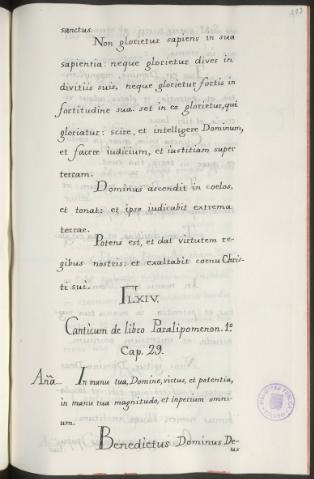 sanctus.
Non glorietur sapiens in sua
sapientia: neque glorietur dives in
divitiis suis, neque glorietur fortis in
fortitudine sua: set in eo glorietur, qui
gloriatur: scire, et intelligere Dominum,
et facere iudicium, et iustitiam super
terram.
Dominus ascendit in coelos,
et tonat: et ipse iudicabit extrema
terrae.
Potens est, et dat virtutem re-
gibus nostris: et exaltabit cornu Chris-
ti sui.
LXIV.
Canticum de libro Paralipomenon. 1º
Cap. 29.
Aña. In manu tua, Domine, virtus, et potentia,
in manu tua magnitudo, et inperium omni-
um.
Benedictus Dominus De-
us